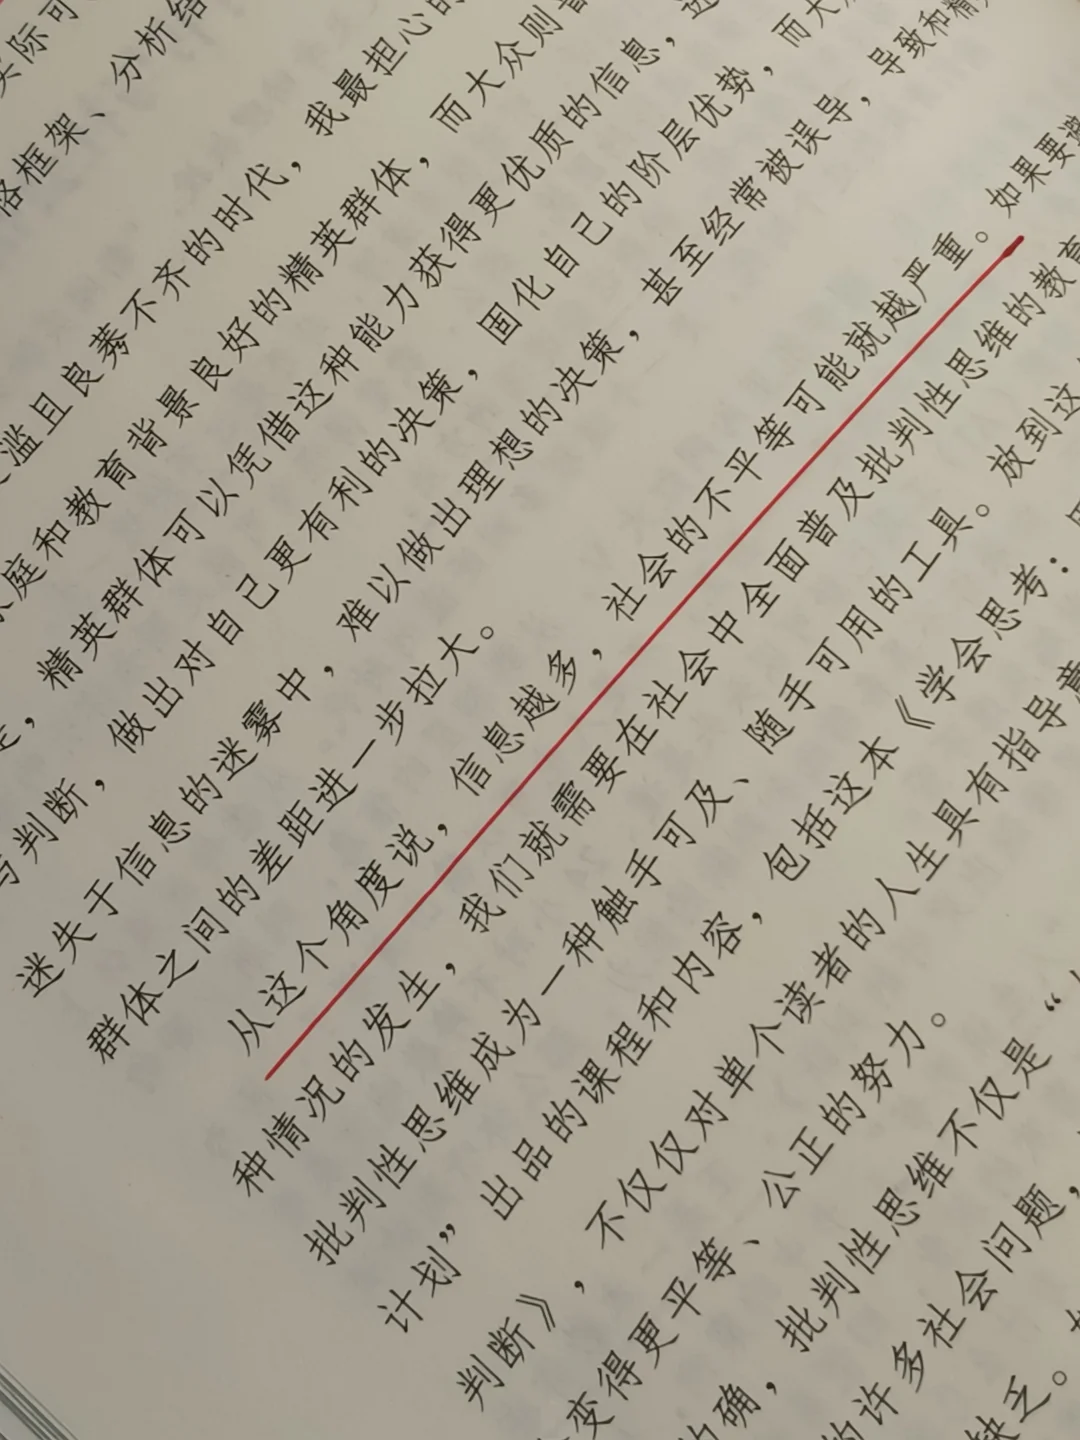 实际可
框架、分析结
滥且良莠不齐的时代，我最担心的
家庭和教育背景良好的精英群体，而大众则普
，精英群体可以凭借这种能力获得更优质的信息，
与判断，做出对自己更有利的决策，固化自己的阶层优势，而大
迷失于信息的迷雾中，难以做出理想的决策，甚至经常被误导，导致和精
群体之间的差距进一步拉大。
从这个角度说，信息越多，社会的不平等可能就越严重。如果要避
种情况的发生，我们就需要在社会中全面普及批判性思维的教育
批判性思维成为一种触手可及、随手可用的工具。放到这
计划”出品的课程和内容，包括这本《学会思考：
判断》，不仅仅对单个读者的人生具有指导意
变得更平等、公正的努力。
的确，批判性思维不仅是“
的许多社会问题，
缺乏。